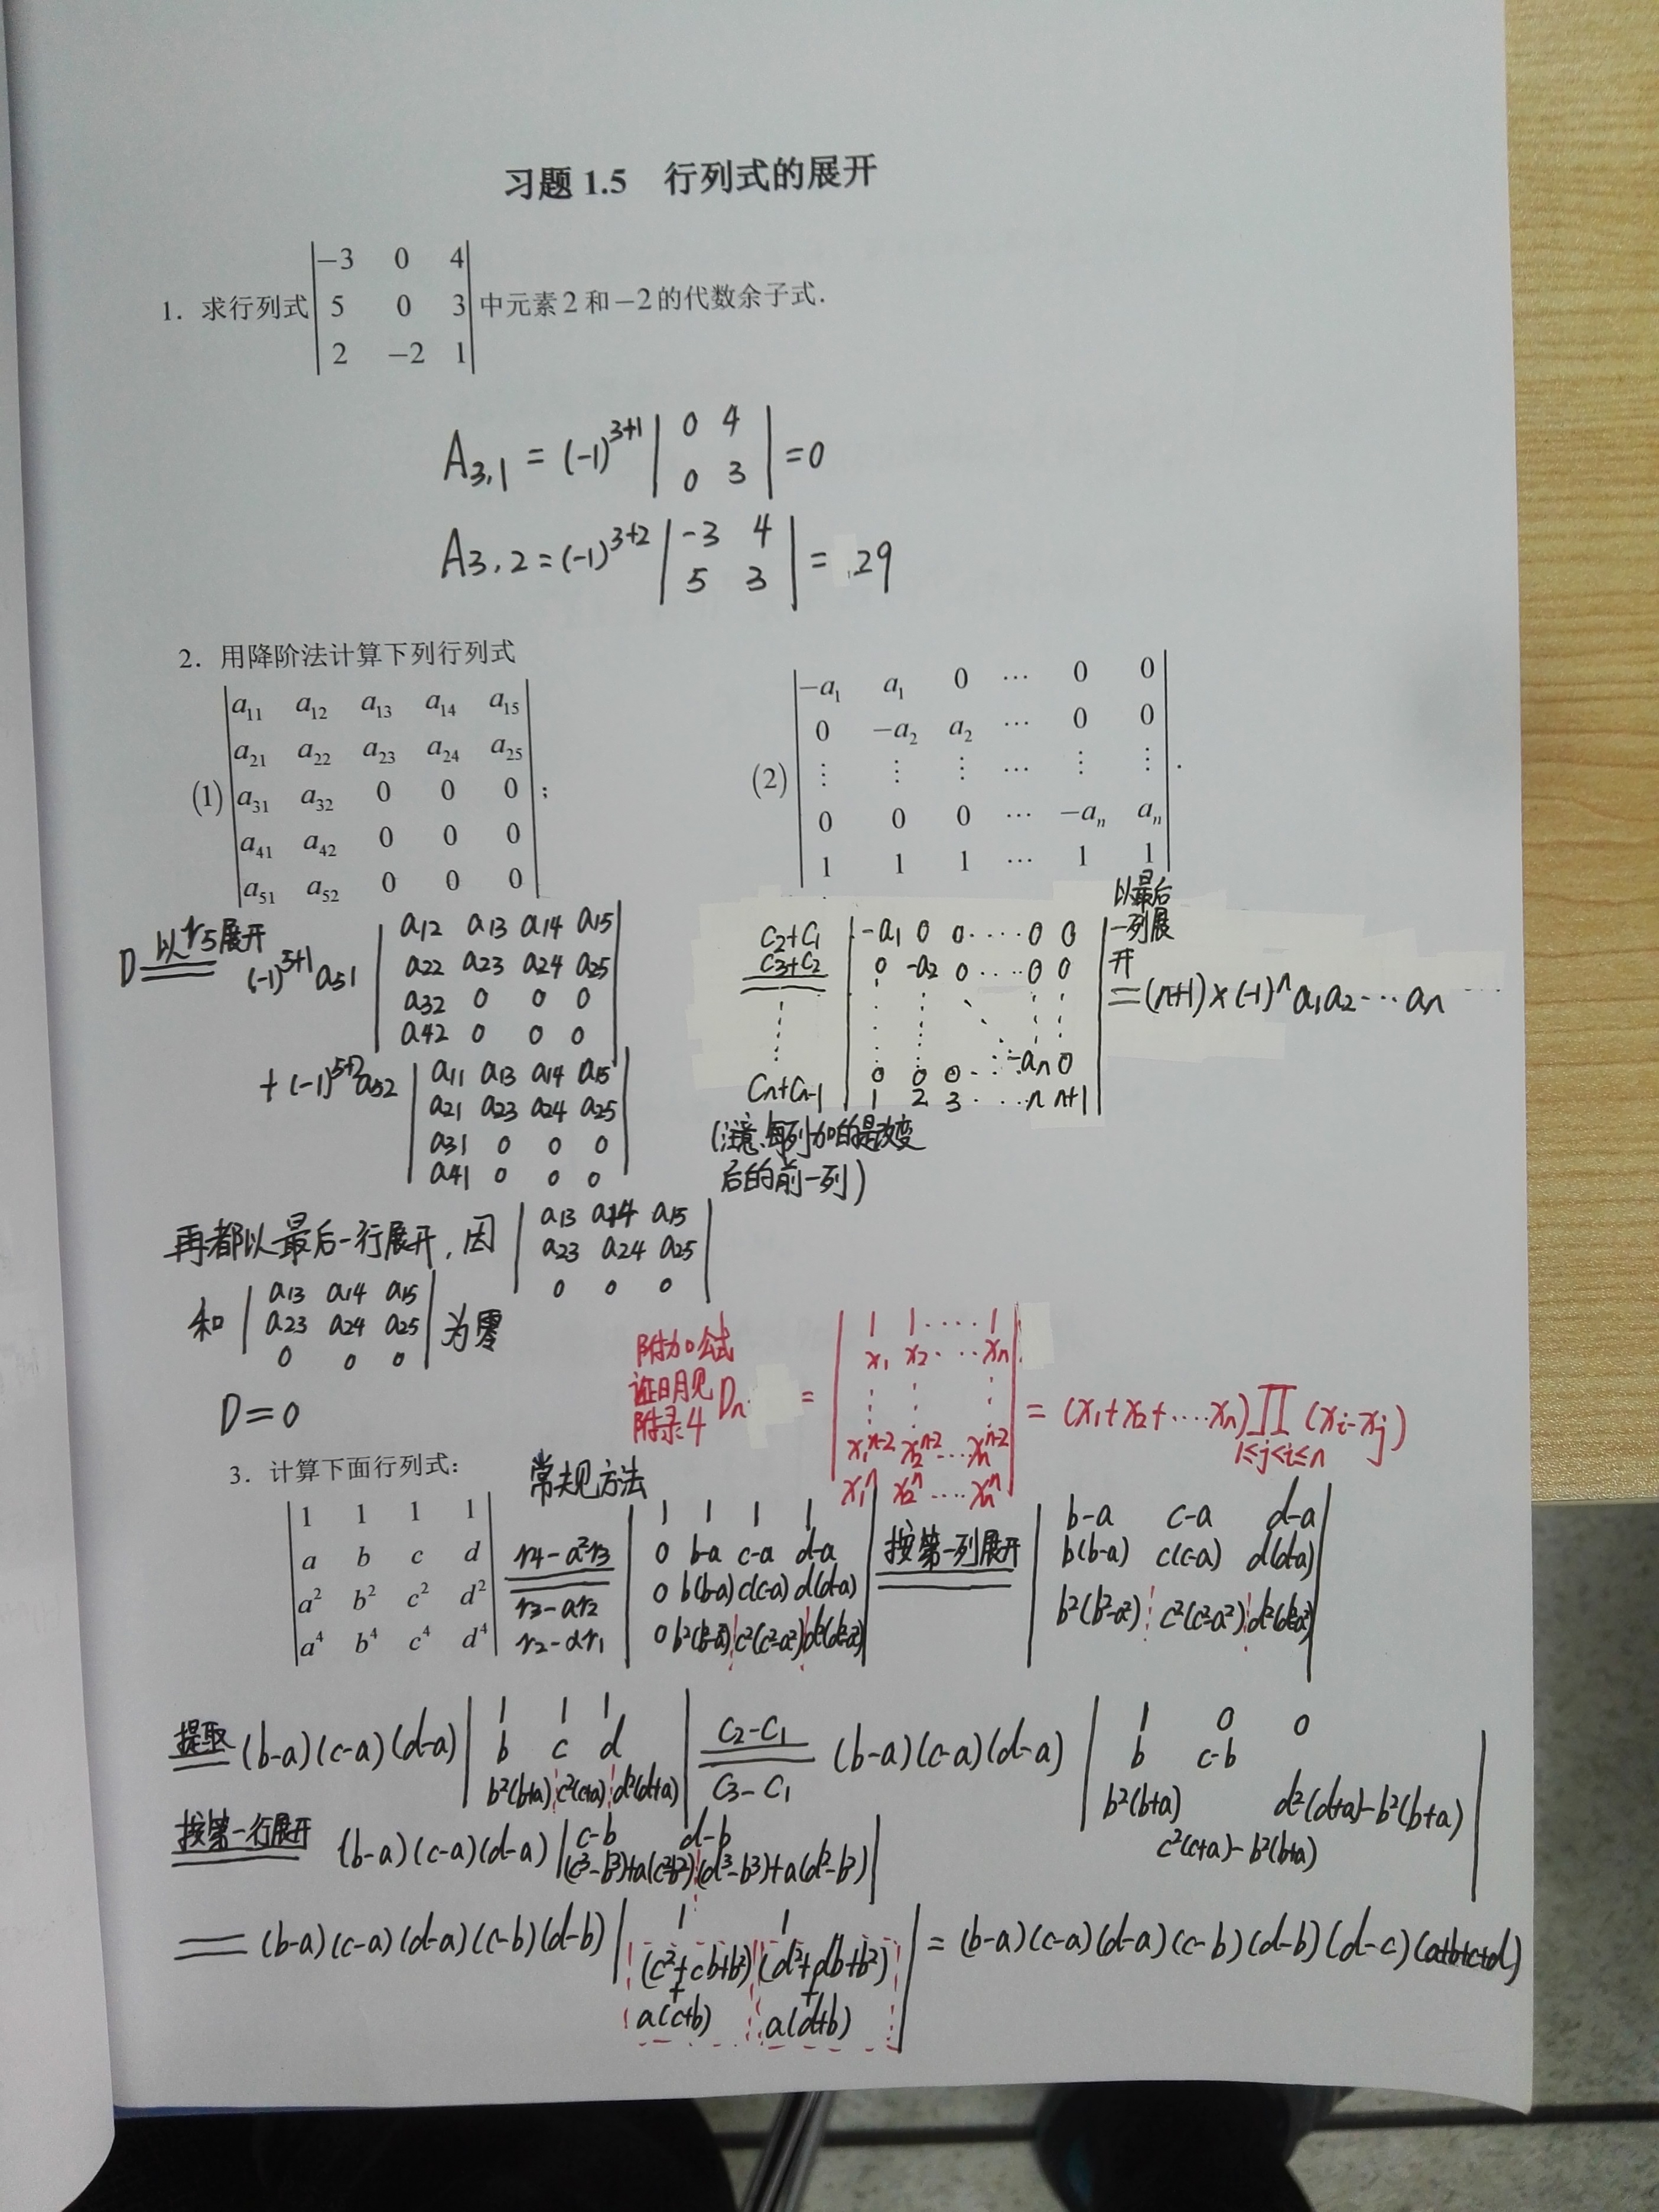 习题 1.5 行列式的展开
1. 求行列式 |-3 0 4| 中元素 2 和 -2 的代数余子式.
|5 0 3|
|2 -2 1|
A3,1 = (-1)^3+1 |0 4| = 0
|0 3|
A3,2 = (-1)^3+2 |-3 4| = 29
|5 3|
2. 用降阶法计算下列行列式
(1) |a11 a12 a13 a14 a15|
|a21 a22 a23 a24 a25|
|a31 a32 0 0 0| ;
|a41 a42 0 0 0|
|a51 a52 0 0 0|
(2) |-a1 a1 0 … 0 0|
|0 -a2 a2 … 0 0|
|⋮ ⋮ ⋮ … ⋮ ⋮| .
|0 0 0 … -an an|
|1 1 1 … 1 1|
D 以r5展开 (-1)^5+1 a51 |a12 a13 a14 a15|
|a22 a23 a24 a25|
|a32 0 0 0|
|a42 0 0 0|
+ (-1)^5+2 a52 |a11 a13 a14 a15|
|a21 a23 a24 a25|
|a31 0 0 0|
|a41 0 0 0|
再都以最后一行展开, 因 |a13 a14 a15|
|a23 a24 a25|
|0 0 0|
和 |a13 a14 a15| 为零
|a23 a24 a25|
|0 0 0|
D = 0
C2+C1 |-a1 0 0 ···· 0 0| 以最后一列展开
C3+C2 |0 -a2 0 ···· 0 0| = (n+1)×(-1)^n a1a2···an
⋮
|0 0 0 ··· -an 0|
Cn+Cn-1 |1 2 3 ···· n n+1|
(注意,每列加的是改变
后的前一列)
附加公式
证明见
附录4
Dn = |1 1 ···· 1|
|x1 x2 ··· xn|
|⋮ ⋮ ⋮|
|x1^n-2 x2^n-2 ··· xn^n-2|
|x1^n x2^n ···· xn^n|
= (x1+x2+····xn) ∏ (xi-xj)
1≤j<i≤n
3. 计算下面行列式:
常规方法
|1 1 1 1|
|a b c d|
|a² b² c² d²|
|a⁴ b⁴ c⁴ d⁴|
r4-a²r3
r3-ar2
r2-ar1
|1 1 1 1|
|0 b-a c-a d-a|
|0 b(b-a) c(c-a) d(d-a)|
|0 b²(b²-a²) c²(c²-a²) d²(d²-a²)|
按第一列展开
|b-a c-a d-a|
|b(b-a) c(c-a) d(d-a)|
|b²(b²-a²) c²(c²-a²) d²(d²-a²)|
提取 (b-a)(c-a)(d-a) |1 1 1|
|b c d|
|b²(b+a) c²(c+a) d²(d+a)|
C2-C1
C3-C1
(b-a)(c-a)(d-a) |1 0 0|
|b c-b|
|b²(b+a) c²(c+a)-b²(b+a) d²(d+a)-b²(b+a)|
按第一行展开 (b-a)(c-a)(d-a) |c-b d-b|
|(c³-b³)+a(c²-b²) (d³-b³)+a(d²-b²)|
= (b-a)(c-a)(d-a)(c-b)(d-b) |1 1|
|(c²+cb+b²)+a(c+b) (d²+db+b²)+a(d+b)|
= (b-a)(c-a)(d-a)(c-b)(d-b)(d-c)(a+b+c+d)